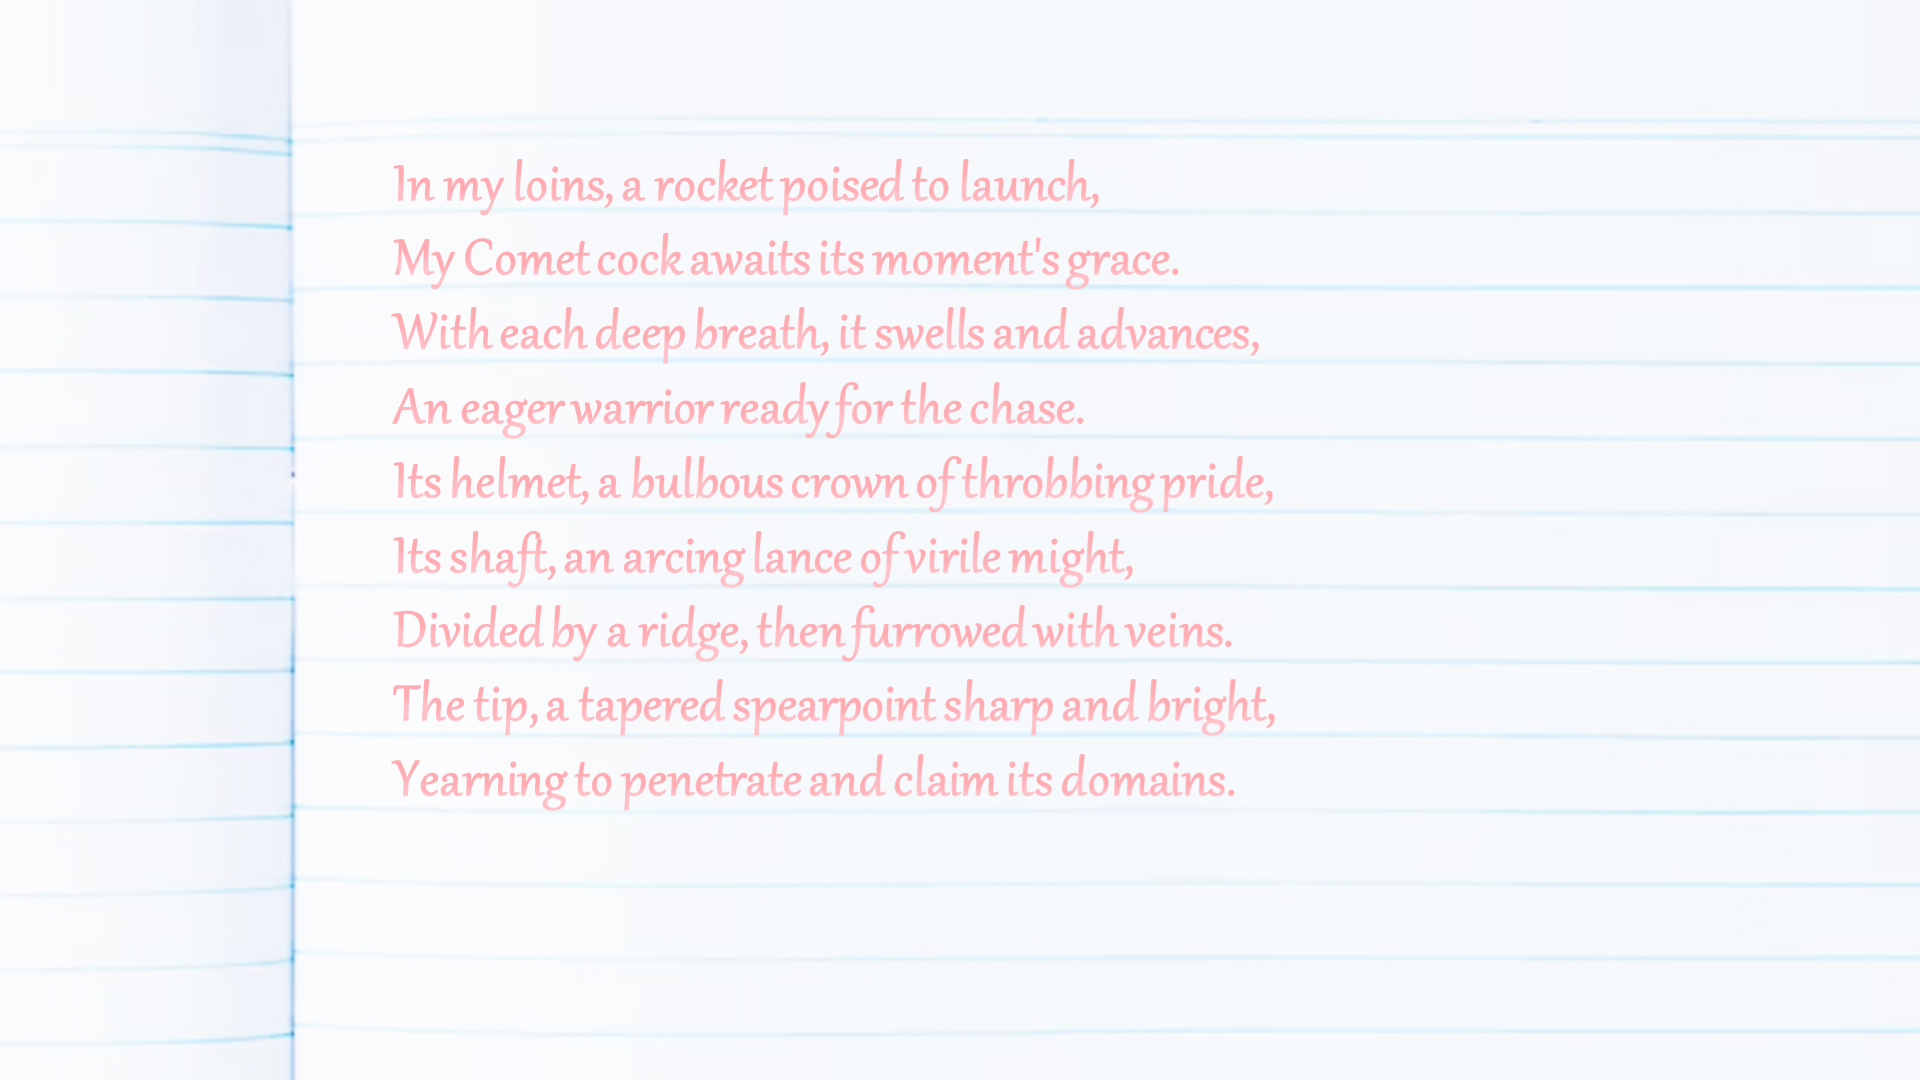 In my loins, a rocket poised to launch,
My Comet cock awaits its moment's grace.
With each deep breath, it swells and advances,
An eager warrior ready for the chase.
Its helmet, a bulbous crown of throbbing pride,
Its shaft, an arcing lance of virile might,
Divided by a ridge, then furrowed with veins.
The tip, a tapered spearpoint sharp and bright,
Yearning to penetrate and claim its domains.